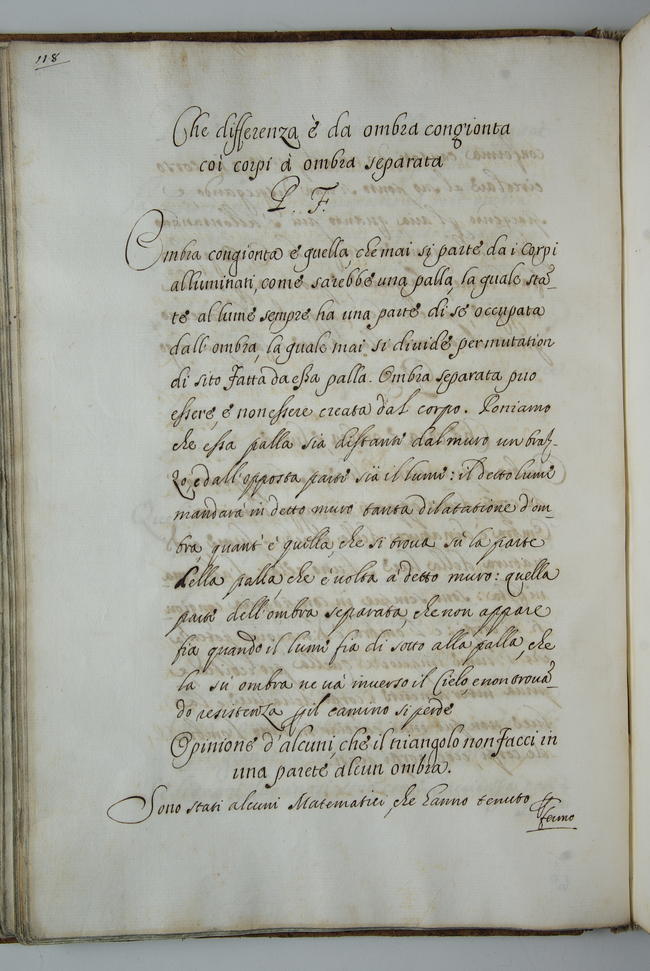 118
Che differenza è da ombra congionta
coi corpi à ombra separata
P. F.
Ombra congionta è quella, che mai si parte da i corpi
alluminati, come sarebbe una palla, la quale stā-
te al lume sempre ha una parte di se occupata
dall'ombra, la quale mai si divide per mutation
di sito fatta da essa palla. Ombra separata può
essere, è non essere creata dal corpo. Poniamo
che essa palla sia distante dal muro un braz-
zo, e dall'opposta parte sia il lume: il detto lume
mandarà in detto muro tanta dilatatione d'om-
bra, quant'è quella, che si trova sù la parte
della palla, che è volta à detto muro: quella
parte dell'ombra separata, che non appare
fia quando il lume fia di sotto alla palla, che
la su' ombra ne và inverso il Cielo, e non trovā-
do resistenza ꝑ il camino si perde
Opinione d'alcuni, che il triangolo non facci in
una parete alcun ombra.
Sono stati alcuni Matematici, che hanno tenuto ꝑ
fermo